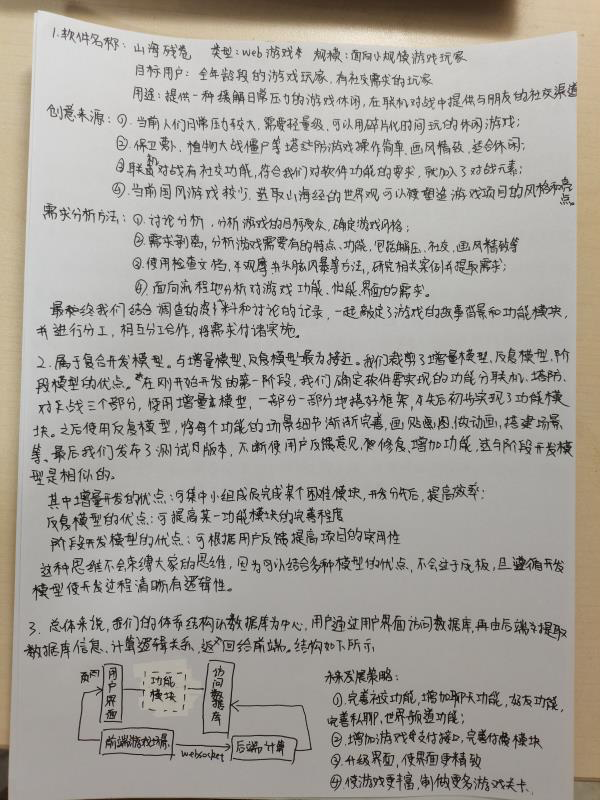 1.软件名称：山海残卷 类型：web游戏 规模：面向小规模游戏玩家
目标用户：全年龄段的游戏玩家，有社交需求的玩家
用途：提供一种缓解日常压力的游戏休闲，在联机对战中提供与朋友的社交渠道
创意来源：①.当前人们日常压力较大，需要轻量级、可以用碎片化时间玩的休闲游戏；
②.保卫萝卜、植物大战僵尸等塔防游戏操作简单，画风精致，适合休闲；
③联机对战有社交功能，符合我们对软件功能的要求，就加入了对战元素；
④.当前国风游戏较少，选取山海经的世界观可以硬塑造游戏项目的风格和亮点。
需求分析方法：①.讨论分析，分析游戏的目标受众，确定游戏风格；
②.需求剥离，分析游戏需要有的特点、功能，包括解压、社交、画风精致等
③.使用检查文档、观摩、头脑风暴等方法，研究相关案例并提取需求；
④.面向流程地分析对游戏功能、性能、界面的需求。
最终我们结合调查的资料和讨论的记录，一起敲定了游戏的故事背景和功能模块，
并进行分工，相互分工合作，将需求付诸实施。
2.属于复合开发模型。与增量模型、反复模型最为接近。我们裁剪了增量模型、反复模型、阶
段模型的优点。在刚开始开发的第一阶段，我们确定软件需实现的功能分联机、塔防、
对战三个部分，使用增量模型，一部分一部分地搭好框架，先后初步实现了功能模
块。之后使用反复模型，将每个功能的场景细节渐渐完善，画贴画图、做动画，搭建场景
等。最后我们发布了测试版本，不断使用户反馈意见，修复、增加功能，这与阶段开发模
型是相似的。
其中增量开发的优点：可集中小组成员完成某个困难模块，开发分先后，提高效率；
反复模型的优点：可提高某一功能模块的完善程度
阶段开发模型的优点：可根据用户反馈提高项目的实用性
这种思维不会束缚大家的思维，因为可以结合多种模型的优点，不会过于死板，且遵循开发
模型使开发过程清晰有逻辑性。
3.总体来说，我们的体系结构以数据库为中心，用户通过用户界面访问数据库，再由后端提取
数据库信息、计算逻辑关系，返回给前端。结构如下所示
网页
用户界面
功能模块
访问数据库
前端游戏场景
websocket
后端计算
未来发展策略：
①.完善社交功能，增加聊天功能，好友功能，
完善私聊，世界频道功能；
②.增加游戏支付接口，完善付费模块
③.升级界面，使界面更精致
④.使游戏更丰富，制做更多游戏关卡.